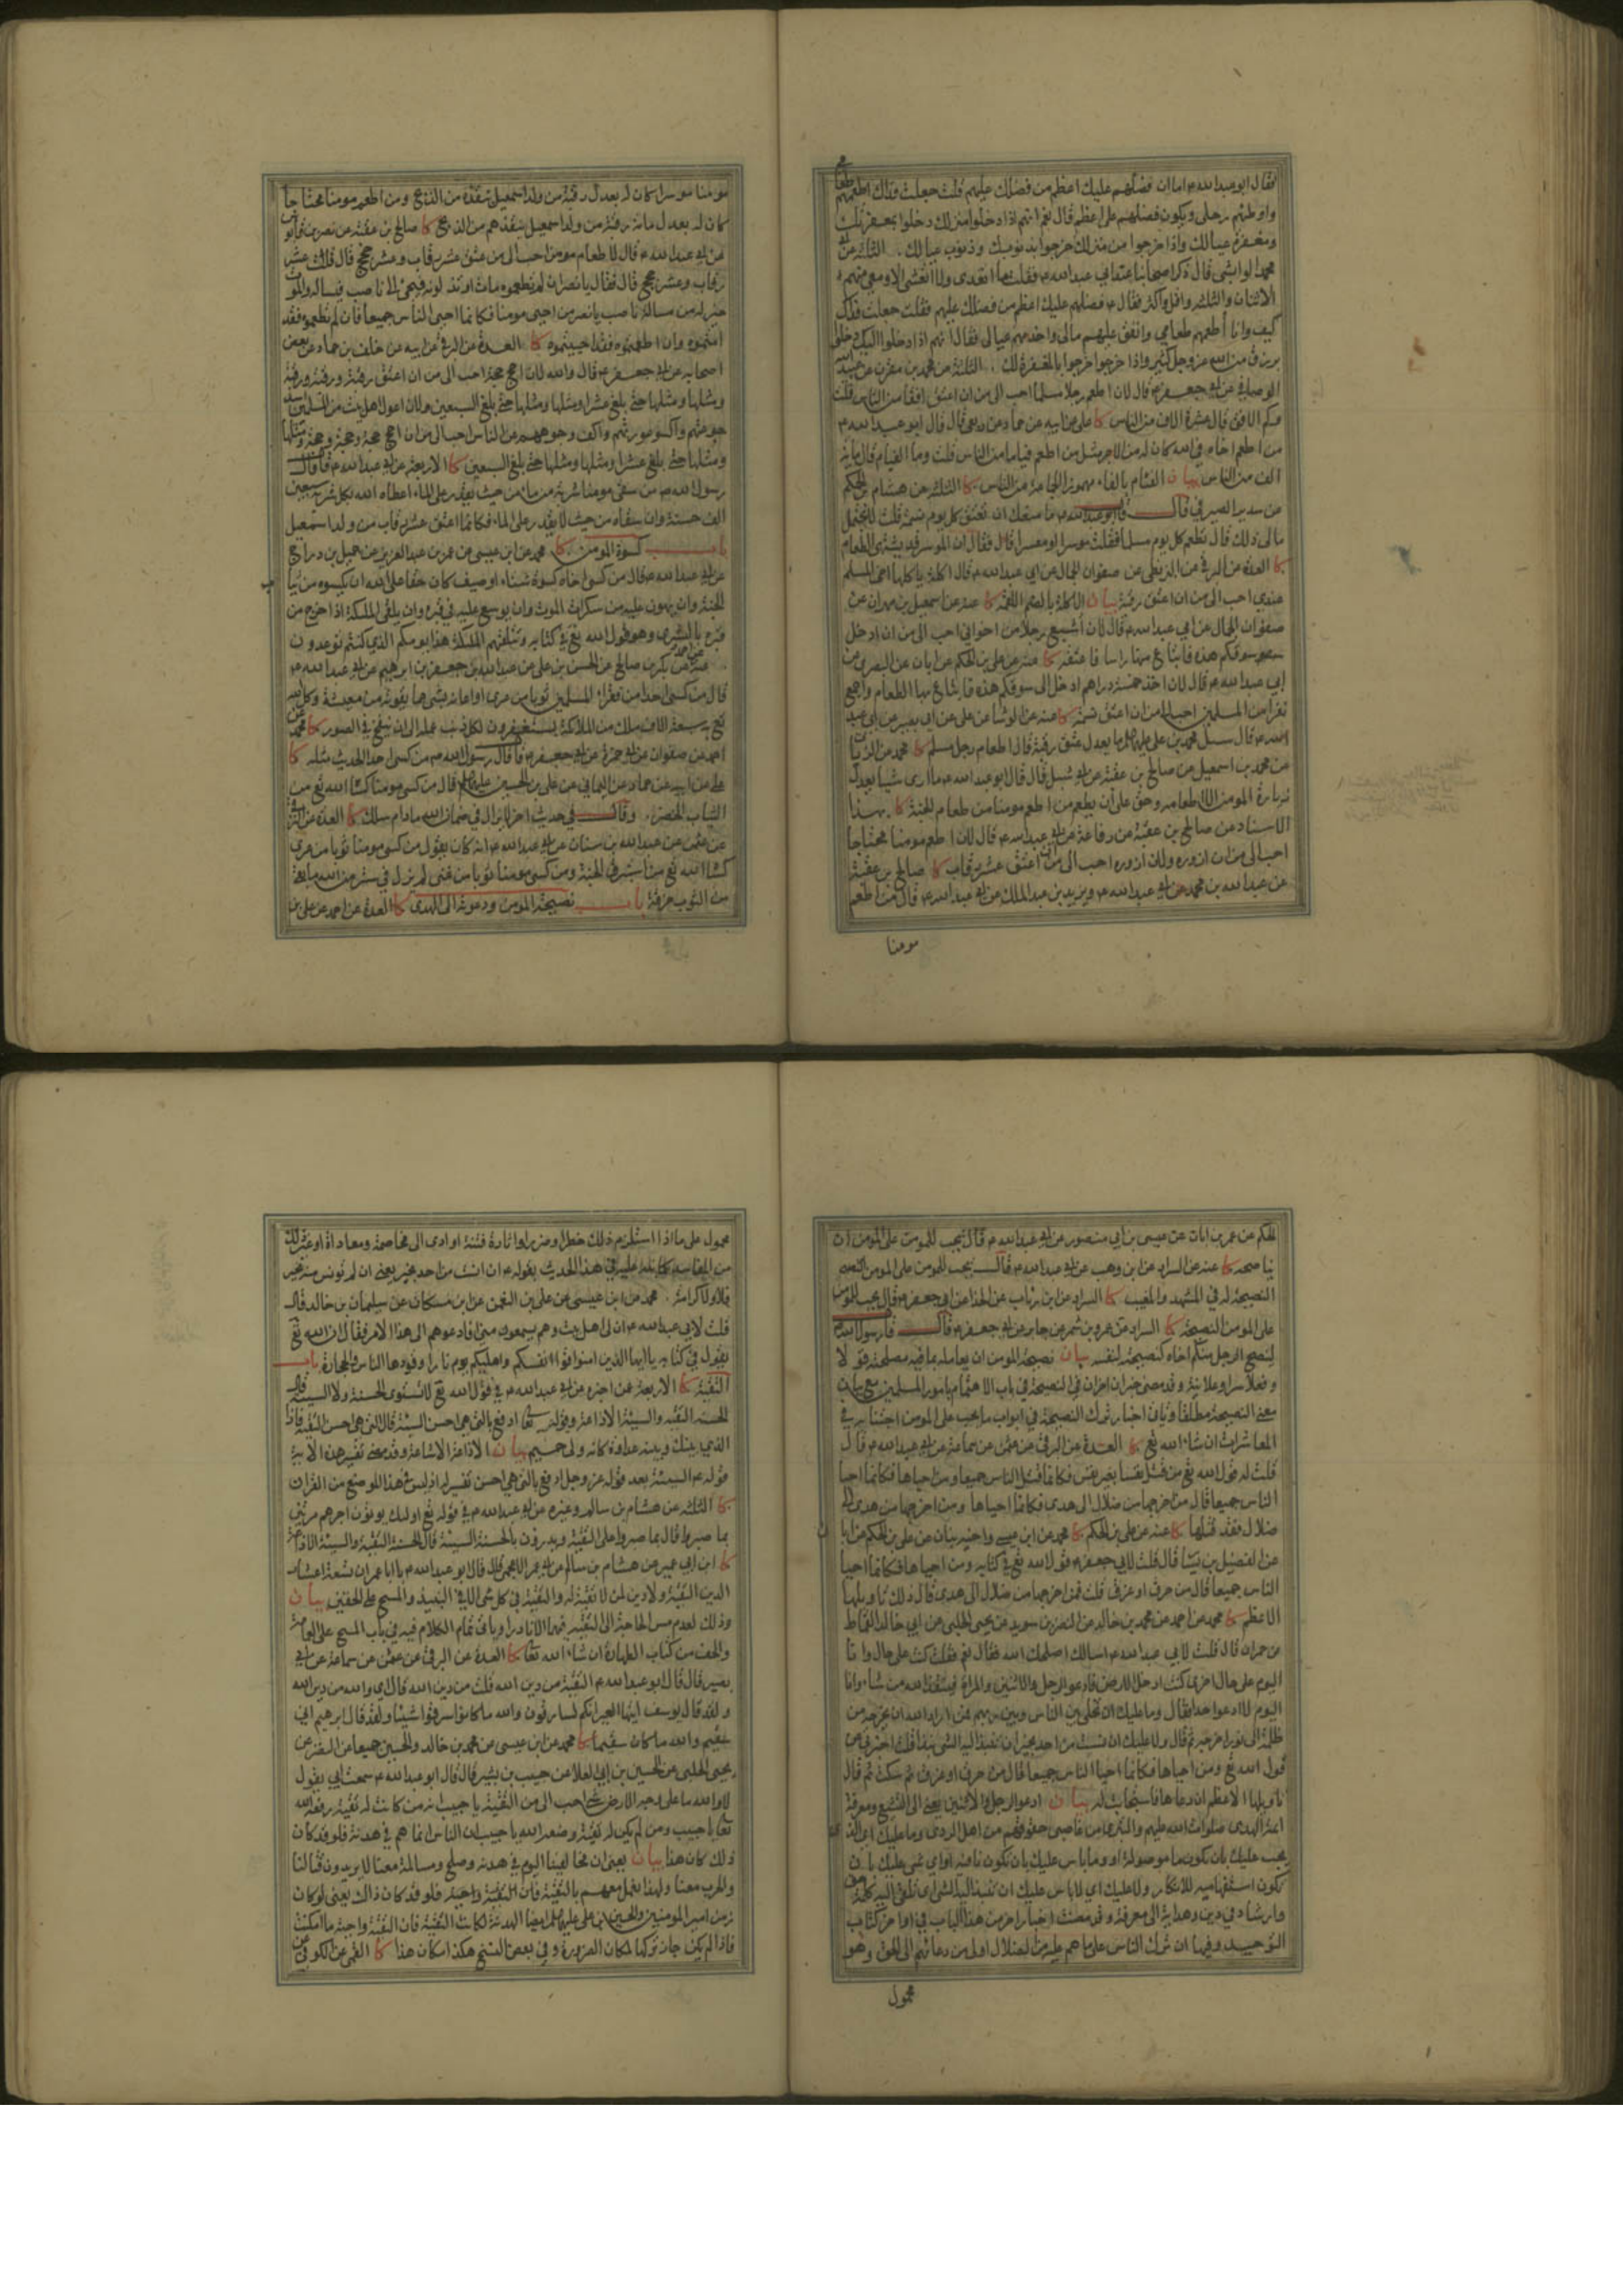 فقال ابو عبدالله ء اما ان فضلهم عليك اعظم من فضلك عليهم قلت جعلت فداك اطعمهم طعامي
واوطئهم رحلي ويكون فضلهم علي اعظم قال نعم انهم اذا دخلوا منزلك دخلوا بمغفرتك
ومغفرة عيالك واذا خرجوا من منزلك خرجوا بذنوبك وذنوب عيالك الثلثة عن
محمد الوابشي قال ذكر اصحابنا عند ابي عبدالله ء فقلت ما اتغدى ولا اتعشى الا ومعي منهم
الاثنان والثلثة واقل واكثر فقال ء فضلهم عليك اعظم من فضلك عليهم فقلت جعلت فداك
كيف وانا اطعمهم طعامي وانفق عليهم مالي واخدمهم عيالي فقال انهم اذا دخلوا اليك دخلوا
برزق من الله عز وجل كثير واذا خرجوا خرجوا بالمغفرة لك الثلثة عن محمد بن مقرن عن عبيدالله
الوصافي عن ابي جعفر ء قال لان اطعم رجلا مسلما احب الي من ان اعتق افقا من الناس قلت
وكم الافق قال عشرة الاف من الناس كا علي عن ابيه عن حماد عن ربعي قال قال ابو عبدالله ء
من اطعم اخاه في الله كان له من الاجر مثل من اطعم فياما من الناس قلت وما الفيام قال ماية
الف من الناس بيان الفئام بالفاء مهموزا الجماعة من الناس كا الثلثة عن هشام بن الحكم
عن سدير الصيرفي قال قال ابو عبدالله ء ما منعك ان تعتق كل يوم نسمة قلت لا يحتمل
مالي ذلك قال تطعم كل يوم مسلما فقلت موسرا او معسرا قال فقال ان الموسر قد يشتهي الطعام
كا العدة عن البرقي عن البزنطي عن صفوان الجمال عن ابي عبدالله ء قال اكلة ياكلها اخي المسلم
عندي احب الي من ان اعتق رقبة بيان الاكلة بالضم اللقمة كا عنه عن اسمعيل بن مهران عن
صفوان الجمال عن ابي عبدالله ء قال لان اشبع رجلا من اخواني احب الي من ان ادخل
سوقكم هذه فابتاع منها راسا فاعتقه كا عنه عن علي بن الحكم عن ابان عن البصري عن
ابي عبدالله ء قال لان اخذ خمسة دراهم ادخل الى سوقكم هذه فابتاع بها الطعام واجمع
نفرا من المسلمين احب الي من ان اعتق نسمة كا عنه عن الوشا عن علي عن ابي بصير عن ابي عبد
الله ء قال سئل محمد بن علي ما يعدل عتق رقبة قال اطعام رجل مسلم كا محمد عن الزيات
عن محمد بن اسمعيل عن صالح بن عقبة عن ابي شبل قال قال ابو عبدالله ء ما ارى شيا يعدل
زيارة المومن الا اطعامه وحق على ان يطعم من اطعم مومنا من طعام الجنة كا بهذا
الاسناد عن صالح بن عقبة عن رفاعة عن ابي عبدالله ء قال لان اطعم مومنا محتاجا
احب الي من ان ازوره ولان ازوره احب الي من ان اعتق عشر رقاب كا صالح بن عقبة
عن عبدالله بن محمد عن ابي عبدالله ء ويزيد بن عبدالملك عن ابي عبدالله ء قال من اطعم
مومنا
مومنا موسرا كان له بعدل رقبة من ولد اسمعيل تنقذه من الذبح ومن اطعم مومنا محتاجا
كان له بعدل مائة رقبة من ولد اسمعيل ينقذهم من الذبح كا صالح بن عقبة عن نصر بن قابوس
عن ابي عبدالله ء قال لاطعام مومن احب الي من عتق عشر رقاب وعشر حجج قال قلت عشر
رقاب وعشر حجج قال فقال يا نصر ان لم تطعموه مات او تدلونه فيجئ الى ناصب فيساله والموت
خير له من مسالة ناصب يا نصر من احيى مومنا فكانما احيى الناس جميعا فان لم تطعموه فقد
امتموه وان اطعمتموه فقد احييتموه كا العدة عن البرقي عن ابيه عن خلف بن حماد عن بعض
اصحابه عن ابي جعفر ء قال والله لان احج حجة احب الي من ان اعتق رقبة ورقبة ورقبة
ومثلها ومثلها حتى بلغ عشرا ومثلها ومثلها حتى بلغ السبعين ولان اعول اهل بيت من المسلمين اسد
جوعتهم واكسو عورتهم واكف وجوههم عن الناس احب الي من ان احج حجة وحجة وحجة ومثلها
ومثلها حتى بلغ عشرا ومثلها ومثلها حتى بلغ السبعين كا الاربعة عن ابي عبدالله ء قال قال
رسول الله ص من سقى مومنا شربة من ماء من حيث يقدر على الماء اعطاه الله بكل شربة سبعين
الف حسنة وان سقاه من حيث لا يقدر على الماء فكانما اعتق عشر رقاب من ولد اسمعيل
باب كسوة المومن كا محمد عن ابن عيسى عن عمر بن عبدالعزيز عن جميل بن دراج
عن ابي عبدالله ء قال من كسى اخاه كسوة شتاء او صيف كان حقا على الله ان يكسوه من ثياب
الجنة وان يهون عليه من سكرات الموت وان يوسع عليه في قبره وان يلقى الملئكة اذا خرج من
قبره بالبشرى وهو قول الله تع في كتابه وتتلقهم الملئكة هذا يومكم الذي كنتم توعدون
عنه عن احمد عن بكر بن صالح عن الحسن بن علي عن عبدالله بن جعفر بن ابرهيم عن ابي عبدالله ء
قال من كسى احدا من فقراء المسلمين ثوبا من عرى او اعانه بشئ مما يقوته من معيشته وكل الله
تع به سبعة الاف ملك من الملائكة يستغفرون لكل ذنب عمله الى ان ينفخ في الصور كا محمد عن
احمد عن صفوان عن ابي حمزة عن ابي جعفر ء قال قال رسول الله ص من كسى احدا الحديث مثله كا
علي عن ابيه عن حماد عن اليماني عن علي بن الحسين قال من كسى مومنا كساه الله تع من
الثياب الخضر وقال في حديث اخر لا يزال في ضمان الله مادام سلك كا العدة عن البرقي
عن عثمن عن عبدالله بن سنان عن ابي عبدالله ء انه كان يقول من كسى مومنا ثوبا من عرى
كساه الله تع من استبرق الجنة ومن كسى مومنا ثوبا من غنى لم يزل في ستر من الله ما بقي
من الثوب خرقة باب نصيحة المومن ودعوته الى الهدى كا العدة عن احمد عن علي بن
الحكم عن عمر بن ابان عن عيسى بن ابي منصور عن ابي عبدالله ء قال يجب للمومن على المومن ان
يناصحه كا عنه عن السراد عن ابن وهب عن ابي عبدالله ء قال يجب للمومن على المومن
النصيحة له في المشهد والمغيب كا السراد عن ابن رئاب عن الحذا عن ابي جعفر ء قال يجب للمومن
على المومن النصيحة كا السراد عن عمرو بن شمر عن جابر عن ابي جعفر ء قال قال رسول الله ص
لينصح الرجل منكم اخاه كنصيحته لنفسه بيان نصيحة المومن ان يعامله بما فيه مصلحته قولا
وفعلا سرا وعلانية وقد مضى خبران اخران في النصيحة في باب الاهتمام بامور المسلمين مع بيان
معنى النصيحة مطلقا وياتي اخبار ترك النصيحة في ابواب ما يجب على المومن اجتنابه في
المعاشرات ان شاء الله تع كا العدة عن البرقي عن عثمن عن سماعة عن ابي عبدالله ء قال
قلت له قول الله تع من قتل نفسا بغير نفس فكانما قتل الناس جميعا ومن احياها فكانما احيا
الناس جميعا قال من اخرجها من ضلال الى هدى فكانما احياها ومن اخرجها من هدى الى
ضلال فقد قتلها كا عنه عن علي بن الحكم كا محمد عن ابن عيسى واخيه بنان عن علي بن الحكم عن ابان
عن الفضيل بن يسار قال قلت لابي جعفر ء قول الله تع في كتابه ومن احياها فكانما احيا
الناس جميعا قال من حرق او غرق قلت فمن اخرجها من ضلال الى هدى قال ذلك تاويلها
الاعظم كا محمد عن احمد عن محمد بن خالد عن النضر بن سويد عن يحيى الحلبي عن ابي خالد القماط
عن حمران قال قلت لابي عبدالله ء اسالك اصلحك الله فقال نعم فقلت كنت على حال وانا
اليوم على حال اخرى كنت ادخل الارض فادعو الرجل والاثنين والمراة فينقذ الله من شاء وانا
اليوم لا ادعو احدا فقال وما عليك ان تخلي بين الناس وبين ربهم فمن اراد الله ان يخرجه من
ظلمة الى نور اخرجه ثم قال ولا عليك ان انست من احد خيرا ان تنبذ اليه الشئ نبذا قلت اخبرني عن
قول الله تع ومن احياها فكانما احيا الناس جميعا قال من حرق او غرق ثم سكت ثم قال
تاويلها الاعظم ان دعاها فاستجابت له بيان ادعو الرجل والاثنين يعني الى التشيع ومعرفة
ائمة الهدى صلوات الله عليهم والتبري من غاصبي حقوقهم من اهل الردى وما عليك اي الذي
يجب عليك بان يكون ما موصولة او وما باس عليك بان تكون نافية او اي شئ عليك بان
تكون استفهامية للانكار ولا عليك اي لا باس عليك ان تنبذ اليه الشئ اي تلقي اليه كلمة حق
وارشاد في دين وهداية الى معرفة وقد مضت اخبار اخر من هذا الباب في اواخر كتاب
التوحيد وفيها ان ترك الناس على ما هم عليه من الضلال اولى من دعائهم الى الحق وهو
محمول
محمول على ما اذا استلزم ذلك خطرا وضررا واثارة فتنة او ادى الى مخاصمة ومعاداة او غير ذلك
من المفاسد كما نبه عليه في هذا الحديث بقوله ء ان انست من احد خيرا يعني ان لم تونس منه خيرا
فلا ولا كرامة محمد عن ابن عيسى عن علي بن النعمن عن ابن مسكان عن سليمان بن خالد قال
قلت لابي عبدالله ء ان لي اهل بيت وهم يسمعون مني افادعوهم الى هذا الامر فقال نعم ان الله تع
يقول في كتابه يا ايها الذين امنوا قوا انفسكم واهليكم نارا وقودها الناس والحجارة باب
التقية كا الاربعة عمن اخبره عن ابي عبدالله ء في قول الله تع لا تستوى الحسنة ولا السيئة قال
الحسنة التقية والسيئة الاذاعة وقوله تعا ادفع بالتي هي احسن السيئة قال التي هي احسن التقية فاذا
الذي بينك وبينه عداوة كانه ولي حميم بيان الاذاعة الاشاعة وقد مضى تفسير هذه الاية
قوله ء السيئة بعد قوله عز وجل ادفع بالتي هي احسن تفسير له اذ ليس في هذا الموضع من القران
كا الثلثة عن هشام بن سالم وغيره عن ابي عبدالله ء في قوله تع اولئك يوتون اجرهم مرتين
بما صبروا قال بما صبروا على التقية ويدرؤن بالحسنة السيئة قال الحسنة التقية والسيئة الاذاعة
كا ابن ابي عمير عن هشام بن سالم عن ابي عمر الاعجمي قال قال ابو عبدالله ء يا ابا عمر ان تسعة اعشار
الدين التقية ولا دين لمن لا تقية له والتقية في كل شئ الا في النبيذ والمسح على الخفين بيان
وذلك لعدم مس الحاجة الى التقية فيهما الا نادرا وياتي تمام الكلام فيه في باب المسح على العمامة
والخف من كتاب الطهارة ان شاء الله تعا كا العدة عن البرقي عن عثمن عن سماعة عن ابي
بصير قال قال ابو عبدالله ء التقية من دين الله قلت من دين الله قال اي والله من دين الله
ولقد قال يوسف ايتها العير انكم لسارقون والله ما كانوا سرقوا شيئا ولقد قال ابرهيم اني
سقيم والله ما كان سقيما كا محمد عن ابن عيسى عن محمد بن خالد والحسين جميعا عن النضر عن
يحيى الحلبي عن الحسين بن ابي العلا عن حبيب بن بشير قال قال ابو عبدالله ء سمعت ابي يقول
لا والله ما على وجه الارض شئ احب الي من التقية يا حبيب انه من كانت له تقية رفعه الله
تعا يا حبيب ومن لم يكن له تقية وضعه الله يا حبيب ان الناس انما هم في هدنة فلو قد كان
ذلك كان هذا بيان يعني ان مخالفينا اليوم في هدنة وصلح ومسالمة معنا لا يريدون قتالنا
والحرب معنا ولهذا نعمل معهم بالتقية فان التقية واجبة فلو قد كان ذاك يعني لو كان
زمن امير المومنين والحسين بن علي ايضا الهدنة لكانت التقية فان التقية واجبة ما امكنت
فاذا لم يكن جاز تركها لمكان الضرورة وفي بعض النسخ هكذا مكان هذا كا القمي عن الكوفي عن